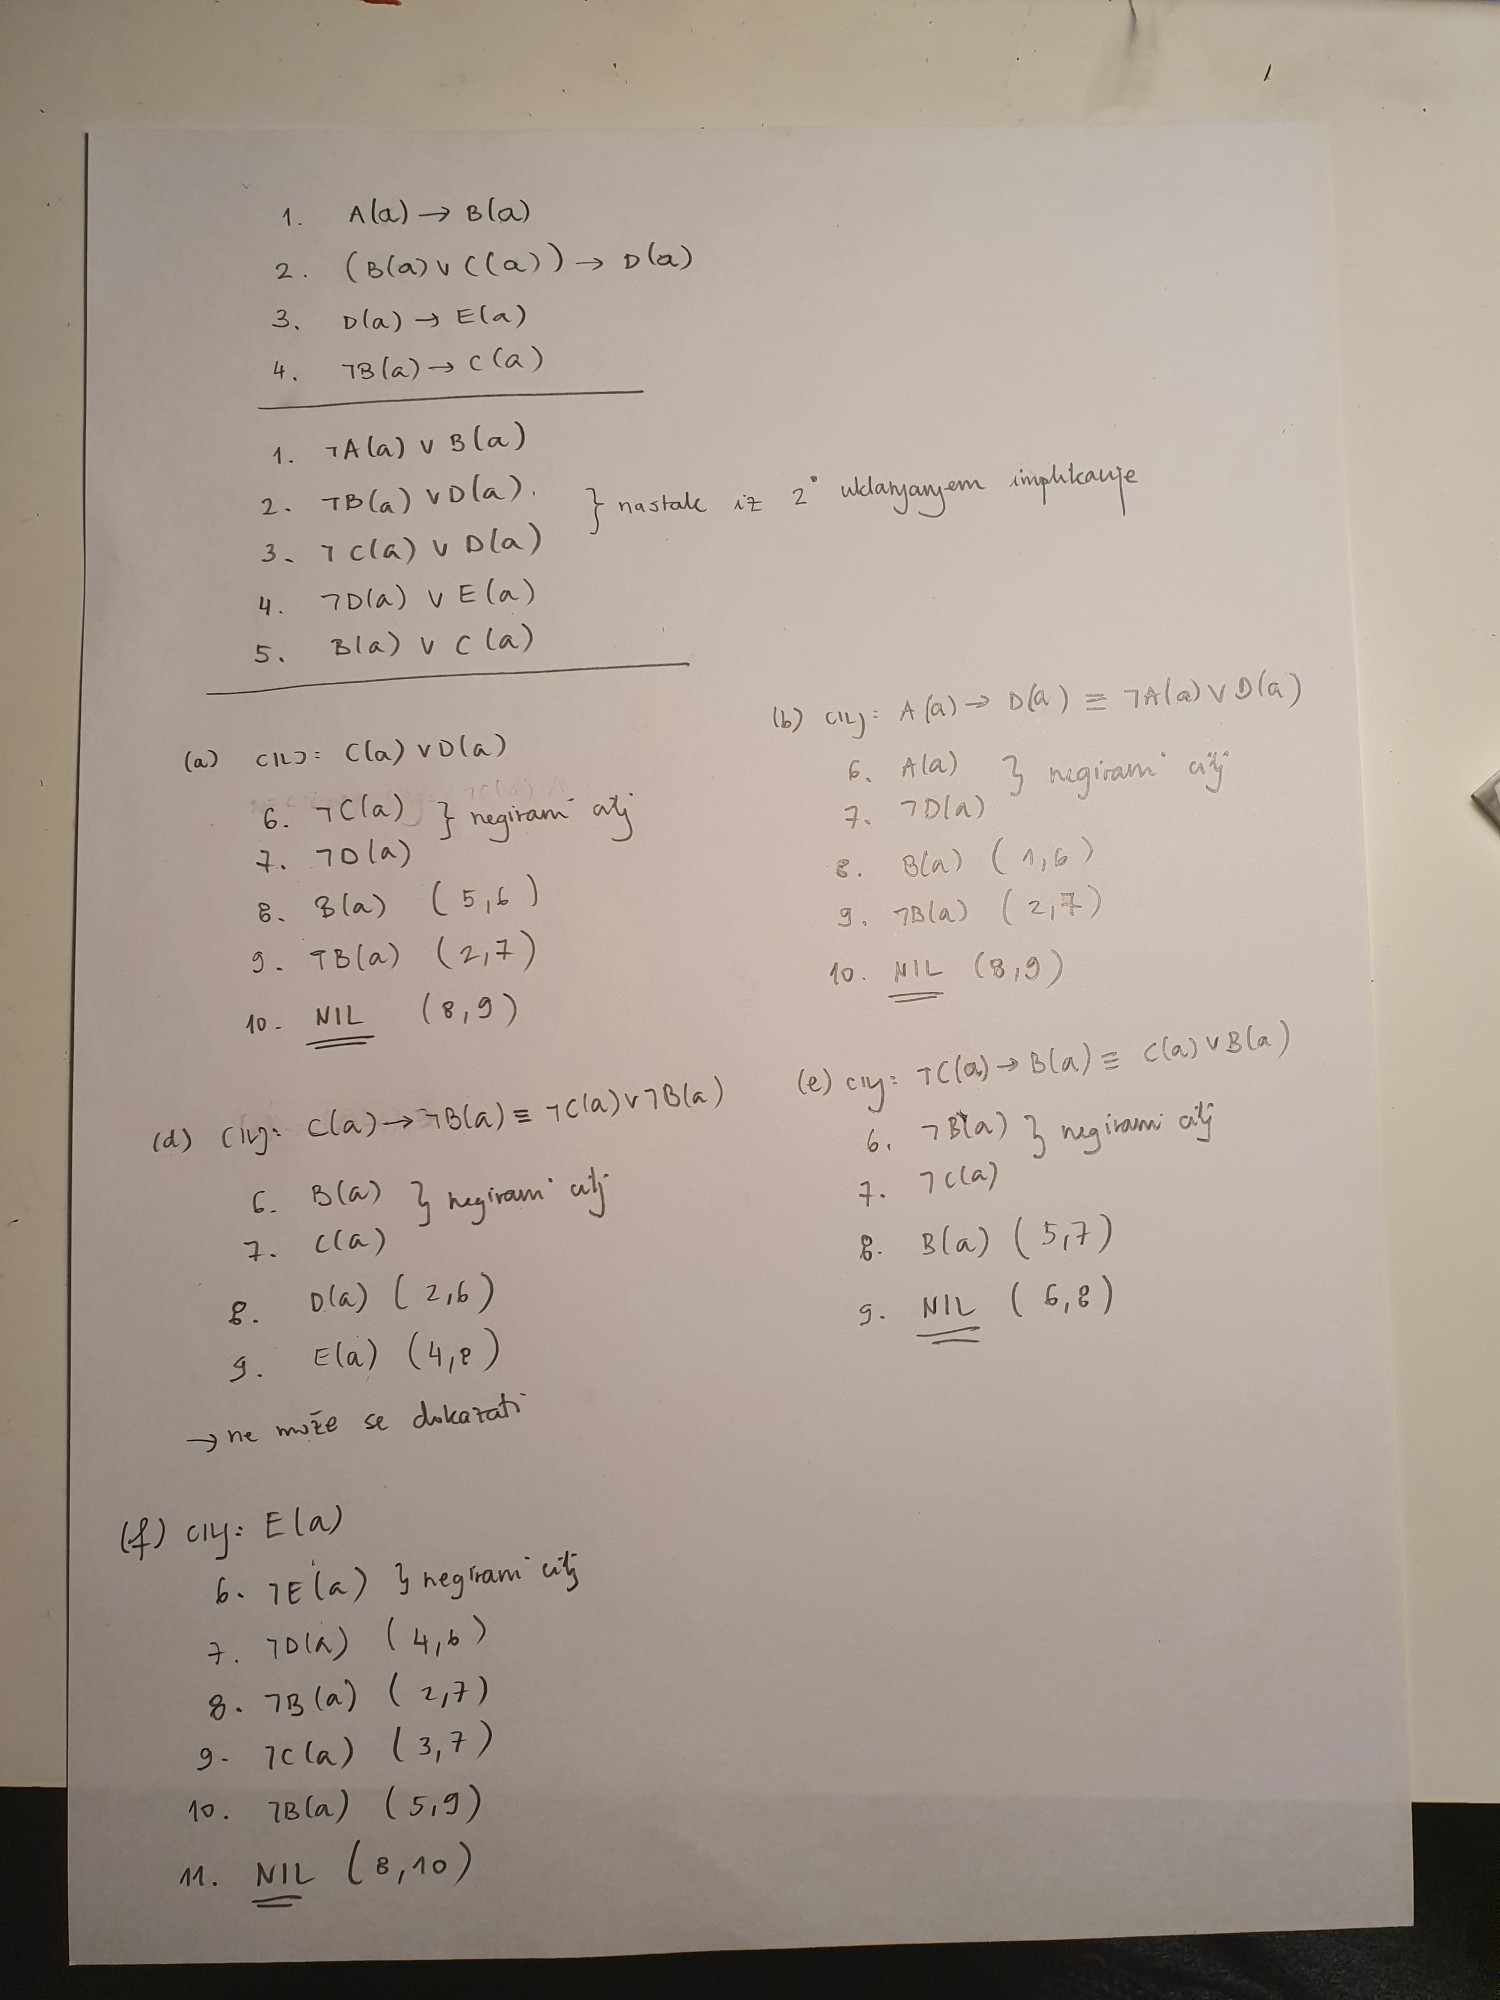 1. A(a) → B(a)
2. (B(a) ∨ C(a)) → D(a)
3. D(a) → E(a)
4. ¬B(a) → C(a)
1. ¬A(a) ∨ B(a)
2. ¬B(a) ∨ D(a).
3. ¬C(a) ∨ D(a)
} nastale iz 2° uklanjanjem implikacije
4. ¬D(a) ∨ E(a)
5. B(a) ∨ C(a)
(a) CILJ: C(a) ∨ D(a)
6. ¬C(a) } negirani cilj
7. ¬D(a)
8. B(a) (5,6)
9. ¬B(a) (2,7)
10. NIL (8,9)
(b) CILJ: A(a) → D(a) ≡ ¬A(a) ∨ D(a)
6. A(a) } negirani cilj
7. ¬D(a)
8. B(a) (1,6)
9. ¬B(a) (2,7)
10. NIL (8,9)
(d) CILJ: C(a) → ¬B(a) ≡ ¬C(a) ∨ ¬B(a)
6. B(a) } negirani cilj
7. C(a)
8. D(a) (2,6)
9. E(a) (4,8)
→ ne može se dokazati
(e) CILJ: ¬C(a) → B(a) ≡ C(a) ∨ B(a)
6. ¬B(a) } negirani cilj
7. ¬C(a)
8. B(a) (5,7)
9. NIL (6,8)
(f) CILJ: E(a)
6. ¬E(a) } negirani cilj
7. ¬D(a) (4,6)
8. ¬B(a) (2,7)
9. ¬C(a) (3,7)
10. ¬B(a) (5,9)
11. NIL (8,10)